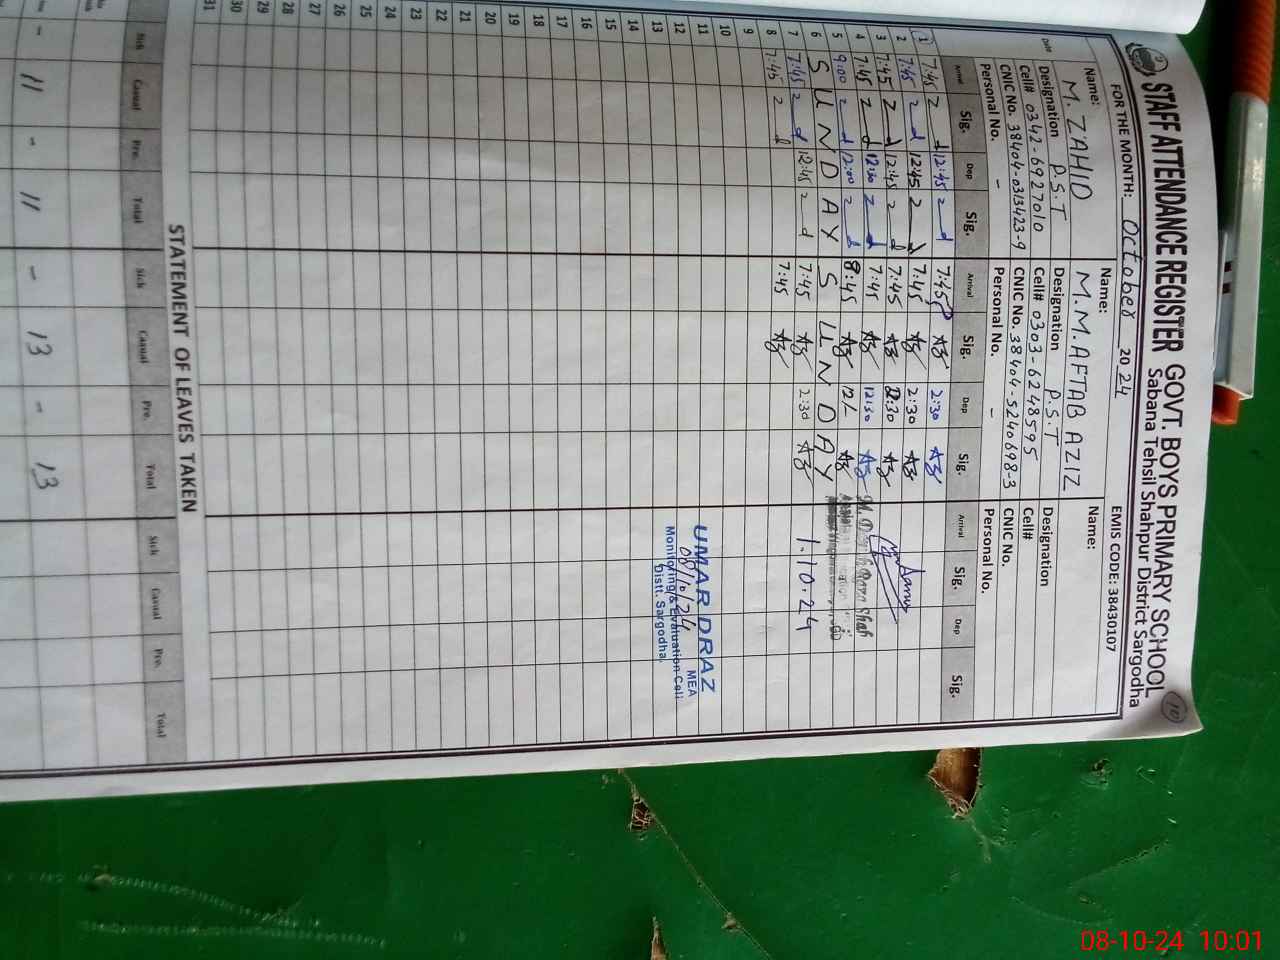 STAFF ATTENDANCE REGISTER GOVT. BOYS PRIMARY SCHOOL
Sabana Tehsil Shahpur District Sargodha
10
FOR THE MONTH: October 2024 EMIS CODE: 38430107
Name: M. ZAHID
Designation P.S.T
Cell# 0342-6927010
CNIC No. 38404-0313423-9
Personal No. -
Name: M.M.AFTAB AZIZ
Designation P.S.T
Cell# 0303-6248595
CNIC No. 38404-5240698-3
Personal No. -
Name:
Designation
Cell#
CNIC No.
Personal No.
Date Arrival Sig. Dep Sig. Arrival Sig. Dep Sig. Arrival Sig. Dep Sig.
1 7:45 12:45 7:45 2:30
2 7:45 12:45 7:45 2:30
3 7:45 12:45 7:45 2:30
4 7:45 12:30 7:45 12:30
5 9:00 12:00 8:45 12/-
6 S U N D A Y S U N D A Y
7 7:45 12:45 7:45 2:30
8 7:45 7:45
9
10
11
12
13
14
15
16
17
18
19
20
21
22
23
24
25
26
27
28
29
30
31
1.10.24
UMAR DRAZ
MEA
08/10/24
Monitoring & Evaluation Cell
Distt. Sargodha.
STATEMENT OF LEAVES TAKEN
Sick Casual Pre. Total Sick Casual Pre. Total Sick Casual Pre. Total
- 11 - 11 - 13 - 13
08-10-24 10:01